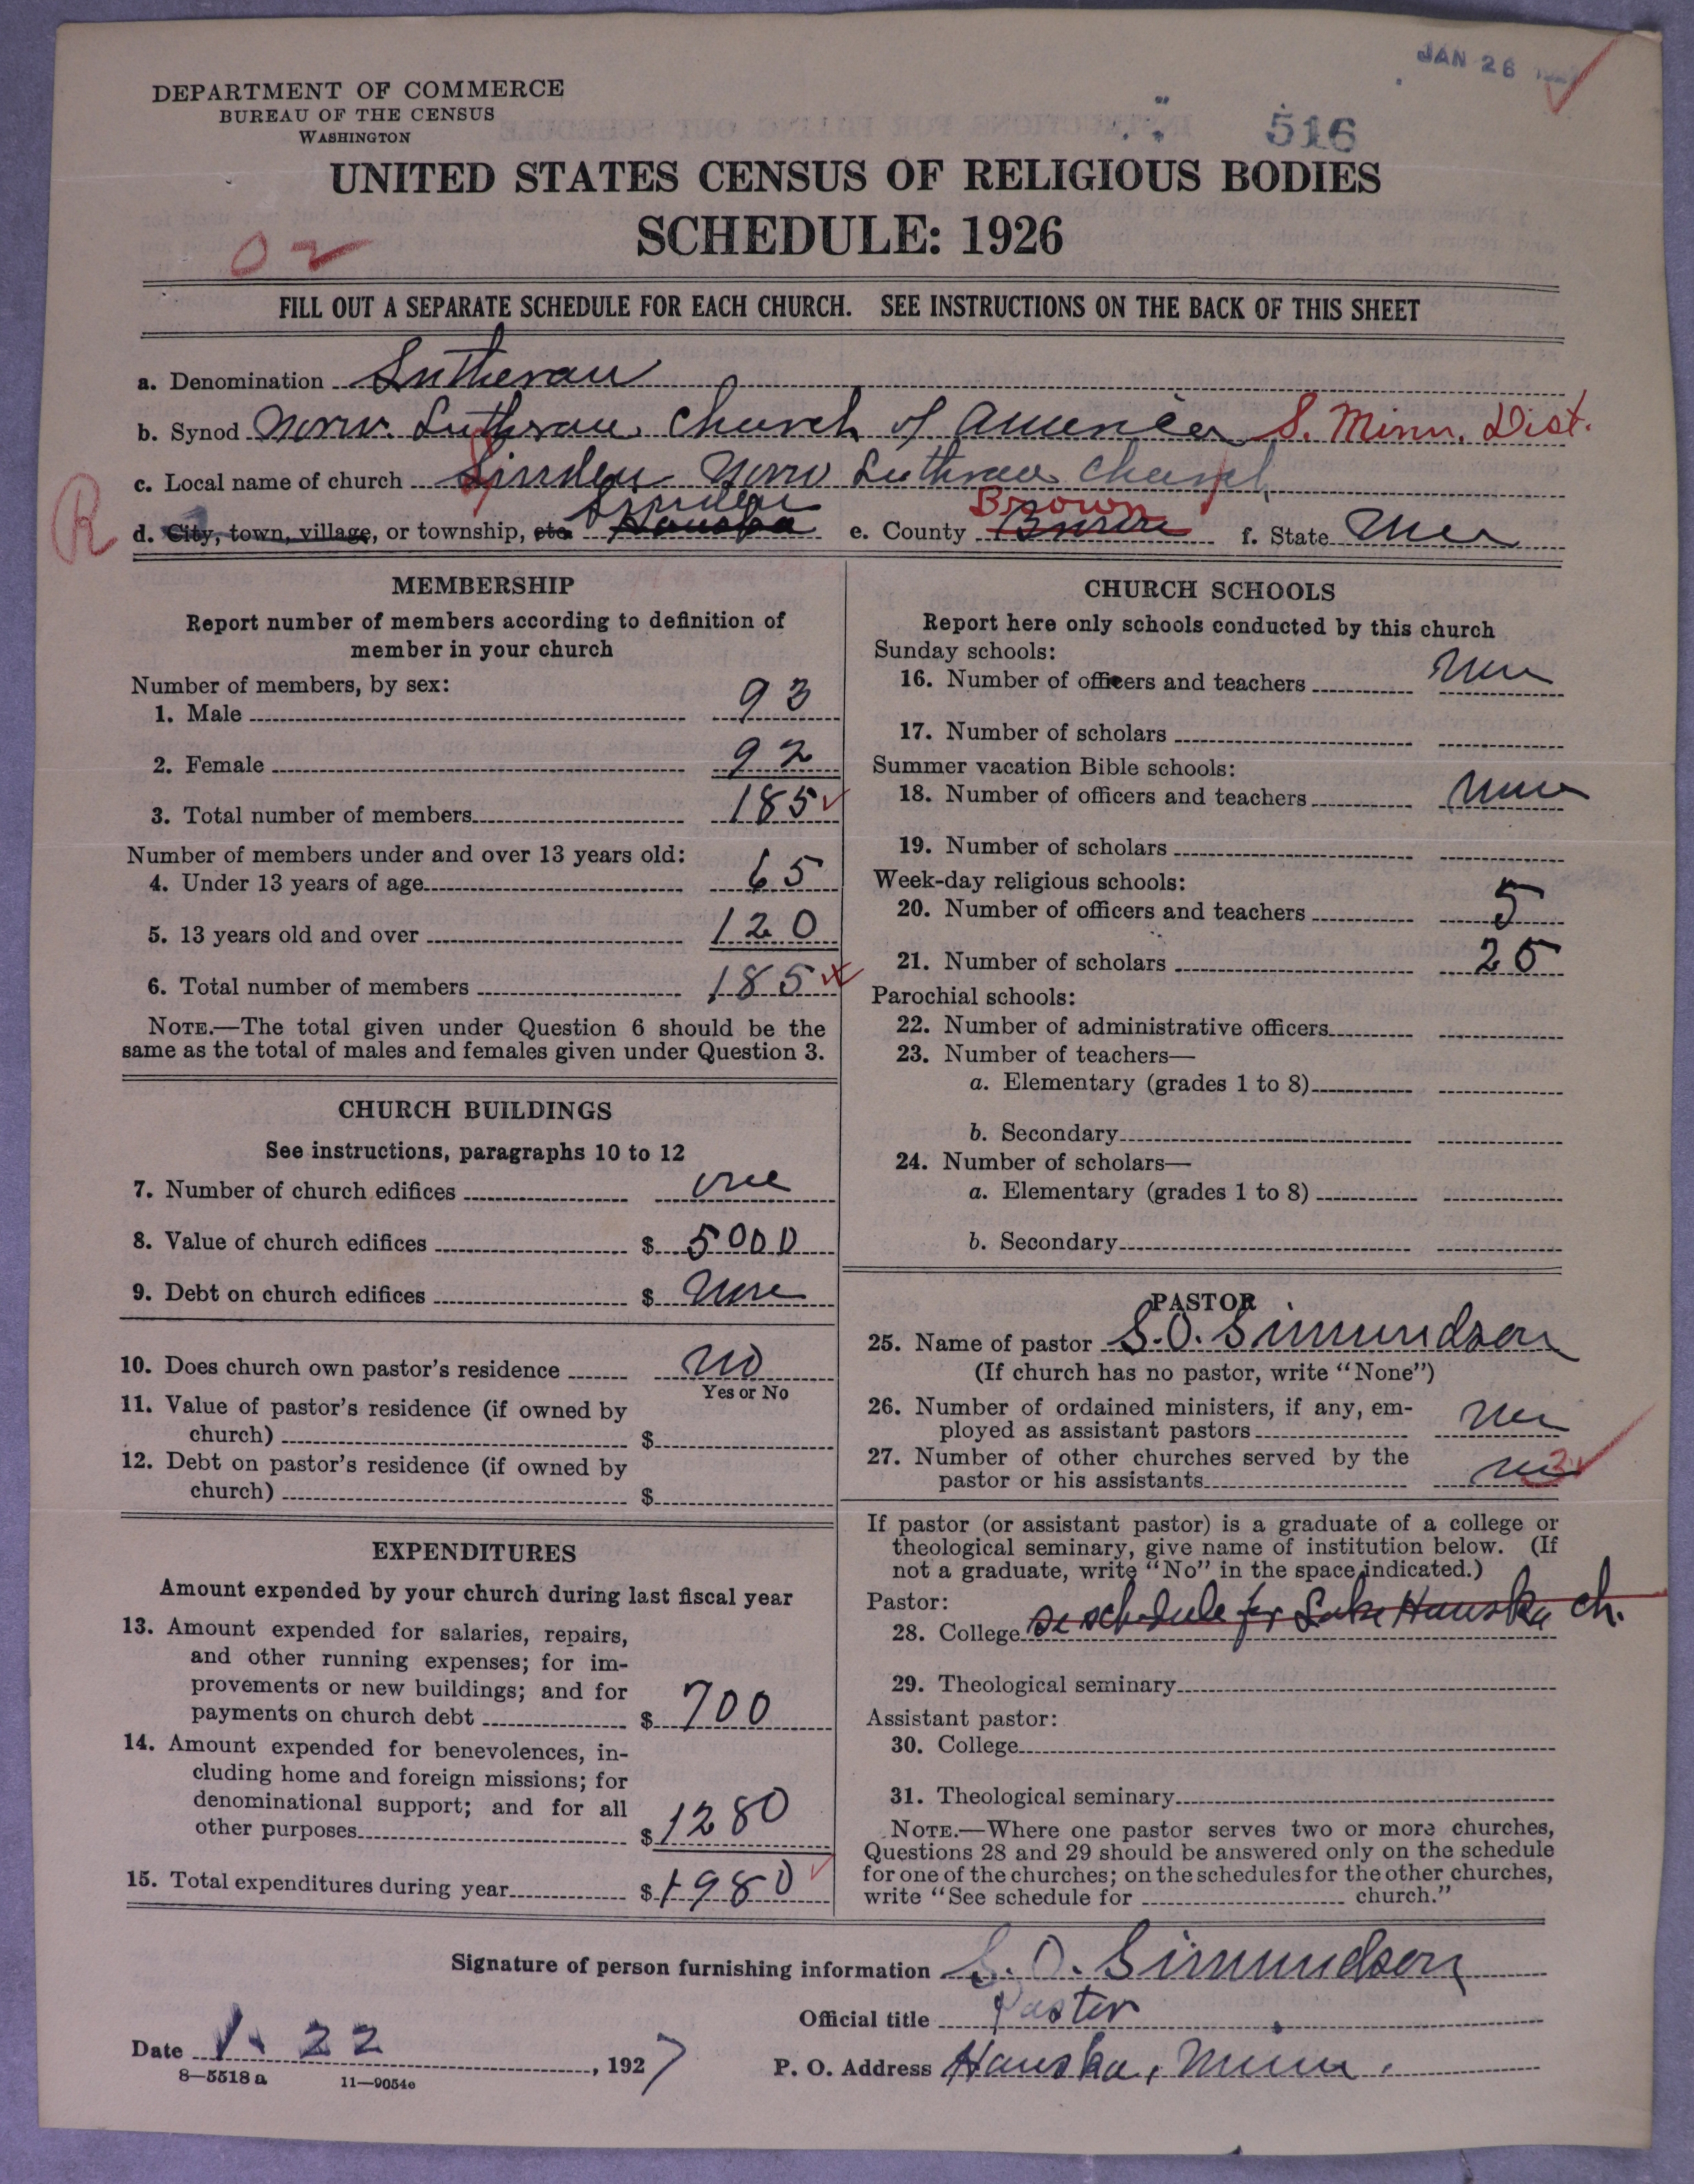 JAN 26
516
DEPARTMENT OF COMMERCE
BUREAU OF THE CENSUS
WASHINGTON
UNITED STATES CENSUS OF RELIGIOUS BODIES
SCHEDULE: 1926
02
FILL OUT A SEPARATE SCHEDULE FOR EACH CHURCH. SEE INSTRUCTIONS ON THE BACK OF THIS SHEET
a. Denomination Lutheran
b. Synod Norw. Lutheran Church of America S. Minn. Dist.
c. Local name of church Linden Norw Lutheran Church
R
Linden Brown
d. City, town, village, or township, etc. Hanska e. County Brown f. State Minn
MEMBERSHIP
Report number of members according to definition of
member in your church
Number of members, by sex:
1. Male 93
2. Female 92
3. Total number of members 185
Number of members under and over 13 years old:
4. Under 13 years of age 65
5. 13 years old and over 120
6. Total number of members 185
NOTE.—The total given under Question 6 should be the
same as the total of males and females given under Question 3.
CHURCH BUILDINGS
See instructions, paragraphs 10 to 12
7. Number of church edifices one
8. Value of church edifices $ 5000
9. Debt on church edifices $ None
10. Does church own pastor's residence no
Yes or No
11. Value of pastor's residence (if owned by
church) $
12. Debt on pastor's residence (if owned by
church) $
EXPENDITURES
Amount expended by your church during last fiscal year
13. Amount expended for salaries, repairs,
and other running expenses; for im-
provements or new buildings; and for
payments on church debt $ 700
14. Amount expended for benevolences, in-
cluding home and foreign missions; for
denominational support; and for all
other purposes $ 1280
15. Total expenditures during year $ 1980
CHURCH SCHOOLS
Report here only schools conducted by this church
Sunday schools:
16. Number of officers and teachers None
17. Number of scholars
Summer vacation Bible schools:
18. Number of officers and teachers None
19. Number of scholars
Week-day religious schools:
20. Number of officers and teachers 5
21. Number of scholars 25
Parochial schools:
22. Number of administrative officers
23. Number of teachers—
a. Elementary (grades 1 to 8)
b. Secondary
24. Number of scholars—
a. Elementary (grades 1 to 8)
b. Secondary
PASTOR
25. Name of pastor S.O. Simundson
(If church has no pastor, write "None")
26. Number of ordained ministers, if any, em-
ployed as assistant pastors
27. Number of other churches served by the
pastor or his assistants 3
If pastor (or assistant pastor) is a graduate of a college or
theological seminary, give name of institution below. (If
not a graduate, write "No" in the space indicated.)
Pastor:
28. College se schedule for Lake Hanska ch.
29. Theological seminary
Assistant pastor:
30. College
31. Theological seminary
NOTE.—Where one pastor serves two or more churches,
Questions 28 and 29 should be answered only on the schedule
for one of the churches; on the schedules for the other churches,
write "See schedule for church."
Signature of person furnishing information S. O. Simundson
Official title Pastor
Date 1. 22, 1927
P. O. Address Hanska, Minn.
8—5518 a 11—9054c